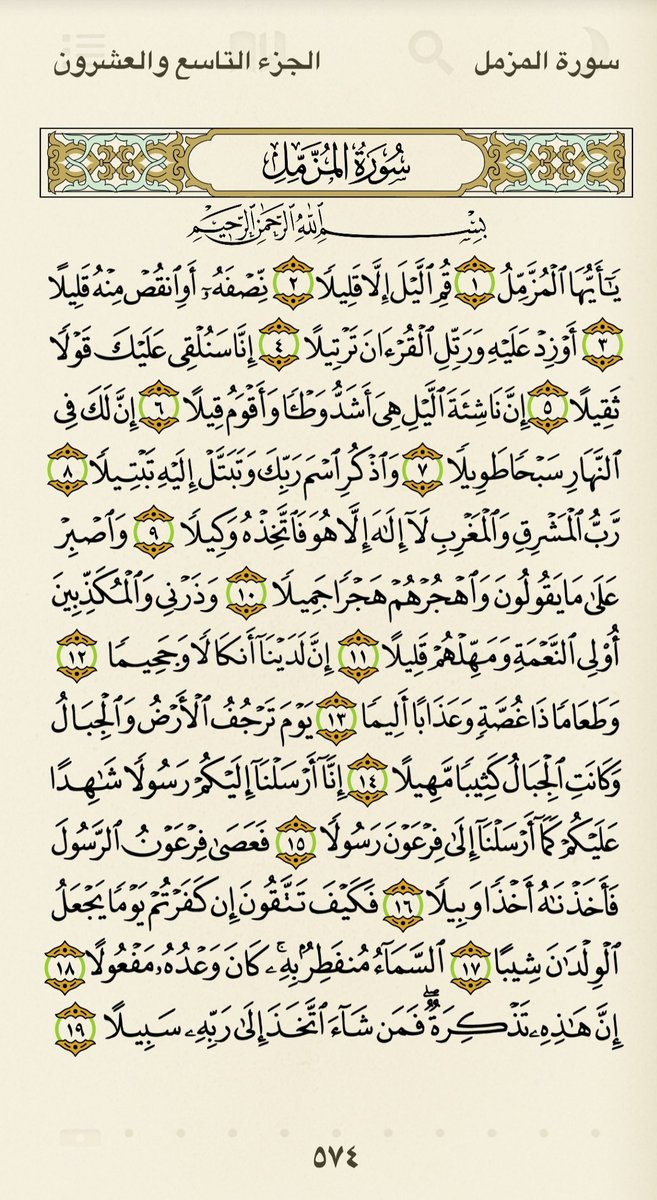 سورة المزمل
الجزء التاسع والعشرون
سُورَةُ المُزَّمِّلِ
بِسْمِ اللَّهِ الرَّحْمَٰنِ الرَّحِيمِ
يَٰٓأَيُّهَا ٱلْمُزَّمِّلُ ١ قُمِ ٱلَّيْلَ إِلَّا قَلِيلًا ٢ نِّصْفَهُۥٓ أَوِ ٱنقُصْ مِنْهُ قَلِيلًا
٣ أَوْ زِدْ عَلَيْهِ وَرَتِّلِ ٱلْقُرْءَانَ تَرْتِيلًا ٤ إِنَّا سَنُلْقِى عَلَيْكَ قَوْلًا
ثَقِيلًا ٥ إِنَّ نَاشِئَةَ ٱلَّيْلِ هِىَ أَشَدُّ وَطْـًٔا وَأَقْوَمُ قِيلًا ٦ إِنَّ لَكَ فِى
ٱلنَّهَارِ سَبْحًا طَوِيلًا ٧ وَٱذْكُرِ ٱسْمَ رَبِّكَ وَتَبَتَّلْ إِلَيْهِ تَبْتِيلًا ٨
رَّبُّ ٱلْمَشْرِقِ وَٱلْمَغْرِبِ لَآ إِلَٰهَ إِلَّا هُوَ فَٱتَّخِذْهُ وَكِيلًا ٩ وَٱصْبِرْ
عَلَىٰ مَا يَقُولُونَ وَٱهْجُرْهُمْ هَجْرًا جَمِيلًا ١٠ وَذَرْنِى وَٱلْمُكَذِّبِينَ
أُو۟لِى ٱلنَّعْمَةِ وَمَهِّلْهُمْ قَلِيلًا ١١ إِنَّ لَدَيْنَآ أَنكَالًا وَجَحِيمًا ١٢
وَطَعَامًا ذَا غُصَّةٍ وَعَذَابًا أَلِيمًا ١٣ يَوْمَ تَرْجُفُ ٱلْأَرْضُ وَٱلْجِبَالُ
وَكَانَتِ ٱلْجِبَالُ كَثِيبًا مَّهِيلًا ١٤ إِنَّآ أَرْسَلْنَآ إِلَيْكُمْ رَسُولًا شَٰهِدًا
عَلَيْكُمْ كَمَآ أَرْسَلْنَآ إِلَىٰ فِرْعَوْنَ رَسُولًا ١٥ فَعَصَىٰ فِرْعَوْنُ ٱلرَّسُولَ
فَأَخَذْنَٰهُ أَخْذًا وَبِيلًا ١٦ فَكَيْفَ تَتَّقُونَ إِن كَفَرْتُمْ يَوْمًا يَجْعَلُ
ٱلْوِلْدَٰنَ شِيبًا ١٧ ٱلسَّمَآءُ مُنفَطِرٌۢ بِهِۦ ۚ كَانَ وَعْدُهُۥ مَفْعُولًا ١٨
إِنَّ هَٰذِهِۦ تَذْكِرَةٌ ۖ فَمَن شَآءَ ٱتَّخَذَ إِلَىٰ رَبِّهِۦ سَبِيلًا ١٩
٥٧٤